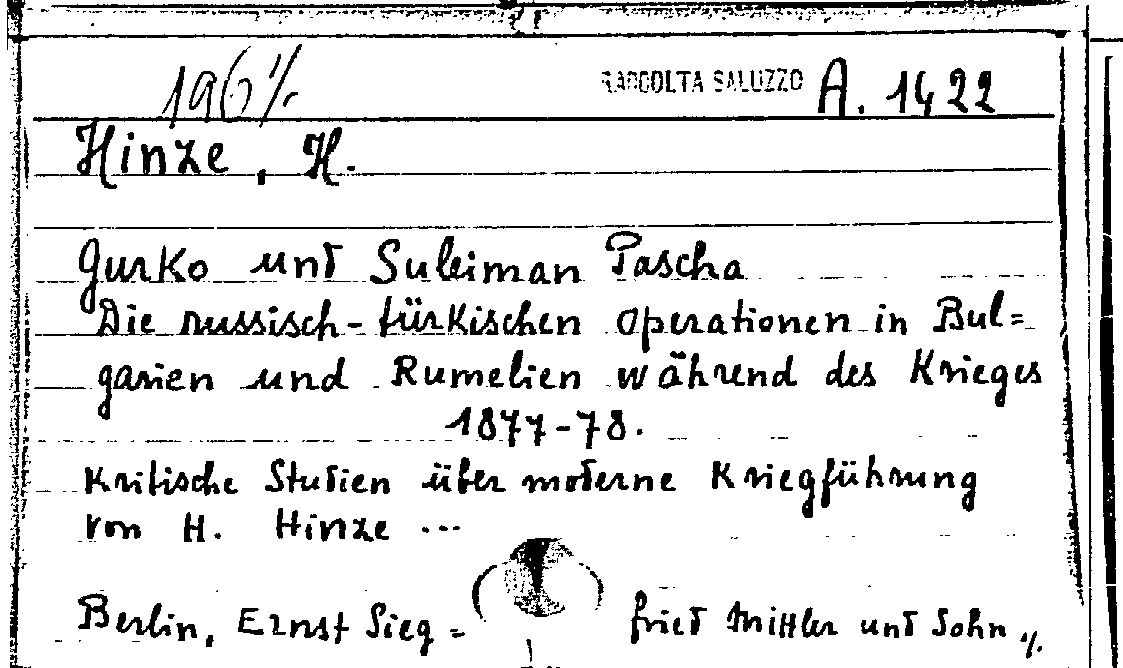 196 RACCOLTA SALUZZO A. 1422
Hinze, H.
Gurko und Suleiman Pascha
Die russisch-türkischen Operationen in Bul=
garien und Rumelien während des Krieges
1877-78.
Kritische Studien über moderne Kriegführung
von H. Hinze ...
Berlin, Ernst Sieg= fried Mittler und Sohn ./.